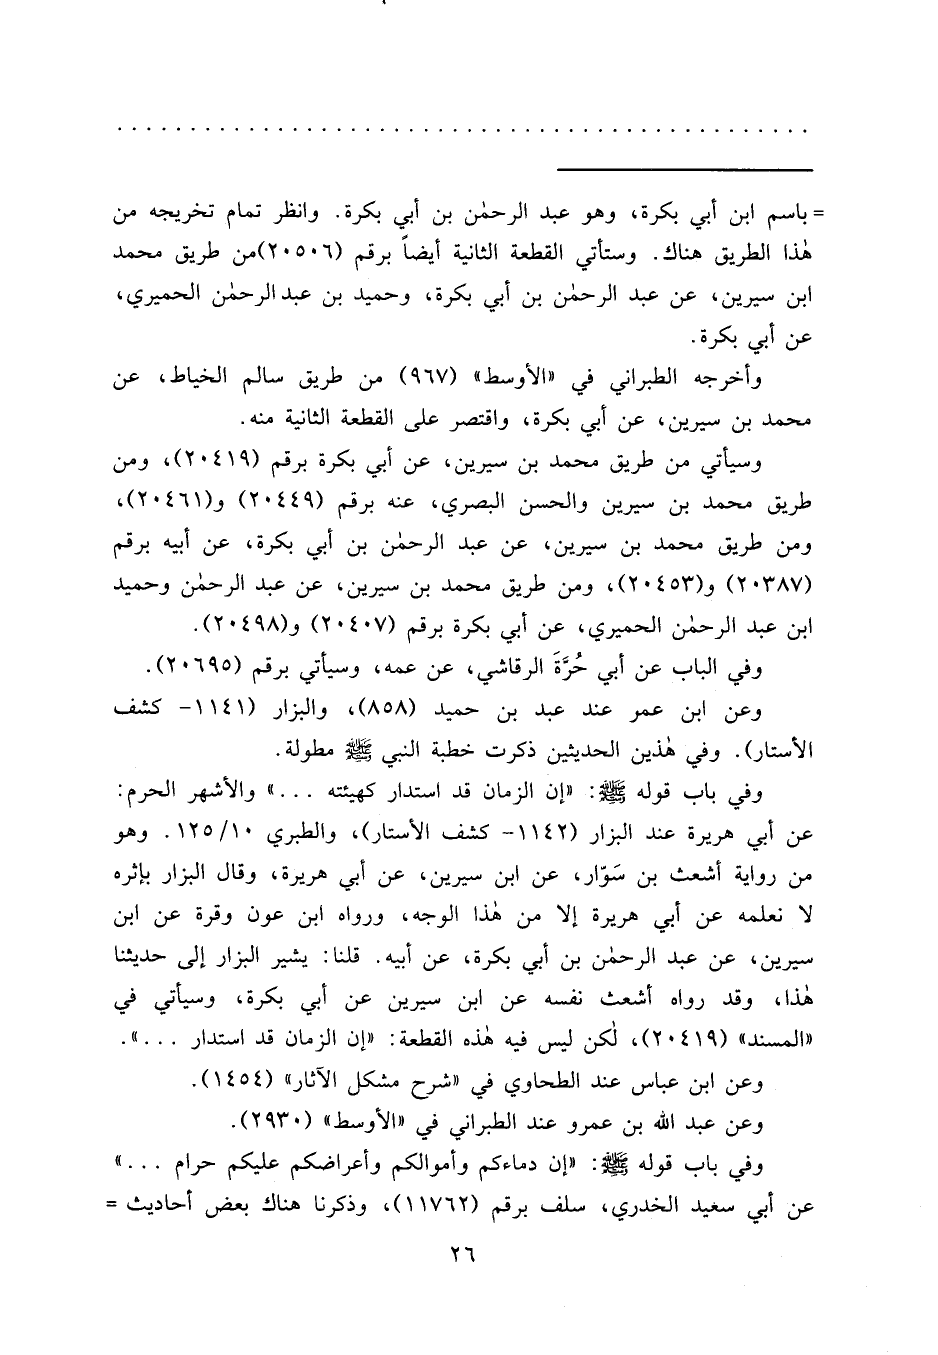 . . . . . . . . . . . . . . . . . . . . . . . . . . . . . . . . . . . . . . . . . . . . . . . .
= باسم ابن أبي بكرة، وهو عبد الرحمٰن بن أبي بكرة. وانظر تمام تخريجه من
هٰذا الطريق هناك. وستأتي القطعة الثانية أيضاً برقم (٢٠٥٠٦)من طريق محمد
ابن سيرين، عن عبد الرحمٰن بن أبي بكرة، وحميد بن عبد الرحمٰن الحميري،
عن أبي بكرة.
وأخرجه الطبراني في «الأوسط» (٩٦٧) من طريق سالم الخياط، عن
محمد بن سيرين، عن أبي بكرة، واقتصر على القطعة الثانية منه.
وسيأتي من طريق محمد بن سيرين، عن أبي بكرة برقم (٢٠٤١٩)، ومن
طريق محمد بن سيرين والحسن البصري، عنه برقم (٢٠٤٤٩) و(٢٠٤٦١)،
ومن طريق محمد بن سيرين، عن عبد الرحمٰن بن أبي بكرة، عن أبيه برقم
(٢٠٣٨٧) و(٢٠٤٥٣)، ومن طريق محمد بن سيرين، عن عبد الرحمٰن وحميد
ابن عبد الرحمٰن الحميري، عن أبي بكرة برقم (٢٠٤٠٧) و(٢٠٤٩٨).
وفي الباب عن أبي حُرَّةَ الرقاشي، عن عمه، وسيأتي برقم (٢٠٦٩٥).
وعن ابن عمر عند عبد بن حميد (٨٥٨)، والبزار (١١٤١- كشف
الأستار). وفي هٰذين الحديثين ذكرت خطبة النبي ﷺ مطولة.
وفي باب قوله ﷺ: «إن الزمان قد استدار كهيئته ...» والأشهر الحرم:
عن أبي هريرة عند البزار (١١٤٢- كشف الأستار)، والطبري ١٢٥/١٠. وهو
من رواية أشعث بن سَوّار، عن ابن سيرين، عن أبي هريرة، وقال البزار بإثره
لا نعلمه عن أبي هريرة إلا من هٰذا الوجه، ورواه ابن عون وقرة عن ابن
سيرين، عن عبد الرحمٰن بن أبي بكرة، عن أبيه. قلنا: يشير البزار إلى حديثنا
هٰذا، وقد رواه أشعث نفسه عن ابن سيرين عن أبي بكرة، وسيأتي في
«المسند» (٢٠٤١٩)، لٰكن ليس فيه هٰذه القطعة: «إن الزمان قد استدار ...».
وعن ابن عباس عند الطحاوي في «شرح مشكل الآثار» (١٤٥٤).
وعن عبد الله بن عمرو عند الطبراني في «الأوسط» (٢٩٣٠).
وفي باب قوله ﷺ: «إن دماءكم وأموالكم وأعراضكم عليكم حرام ...»
عن أبي سعيد الخدري، سلف برقم (١١٧٦٢)، وذكرنا هناك بعض أحاديث =
٢٦